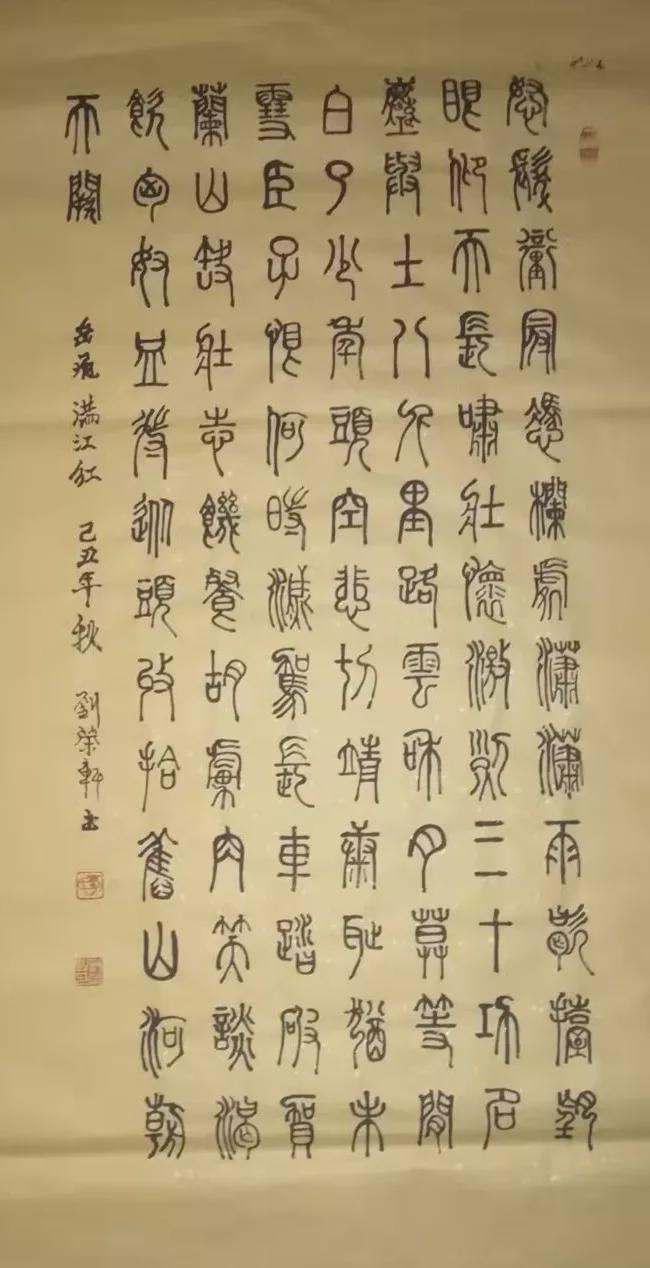 怒髮衝冠憑欄處瀟瀟雨歇擡望
眼仰天長嘯壯懷激烈三十功名
塵與土八千里路雲和月莫等閒
白了少年頭空悲切靖康恥猶未
雪臣子恨何時滅駕長車踏破賀
蘭山缺壯志饑餐胡虜肉笑談渴
飲匈奴血待從頭收拾舊山河朝
天闕
岳飛 满江红 己丑年秋 劉榮軒书